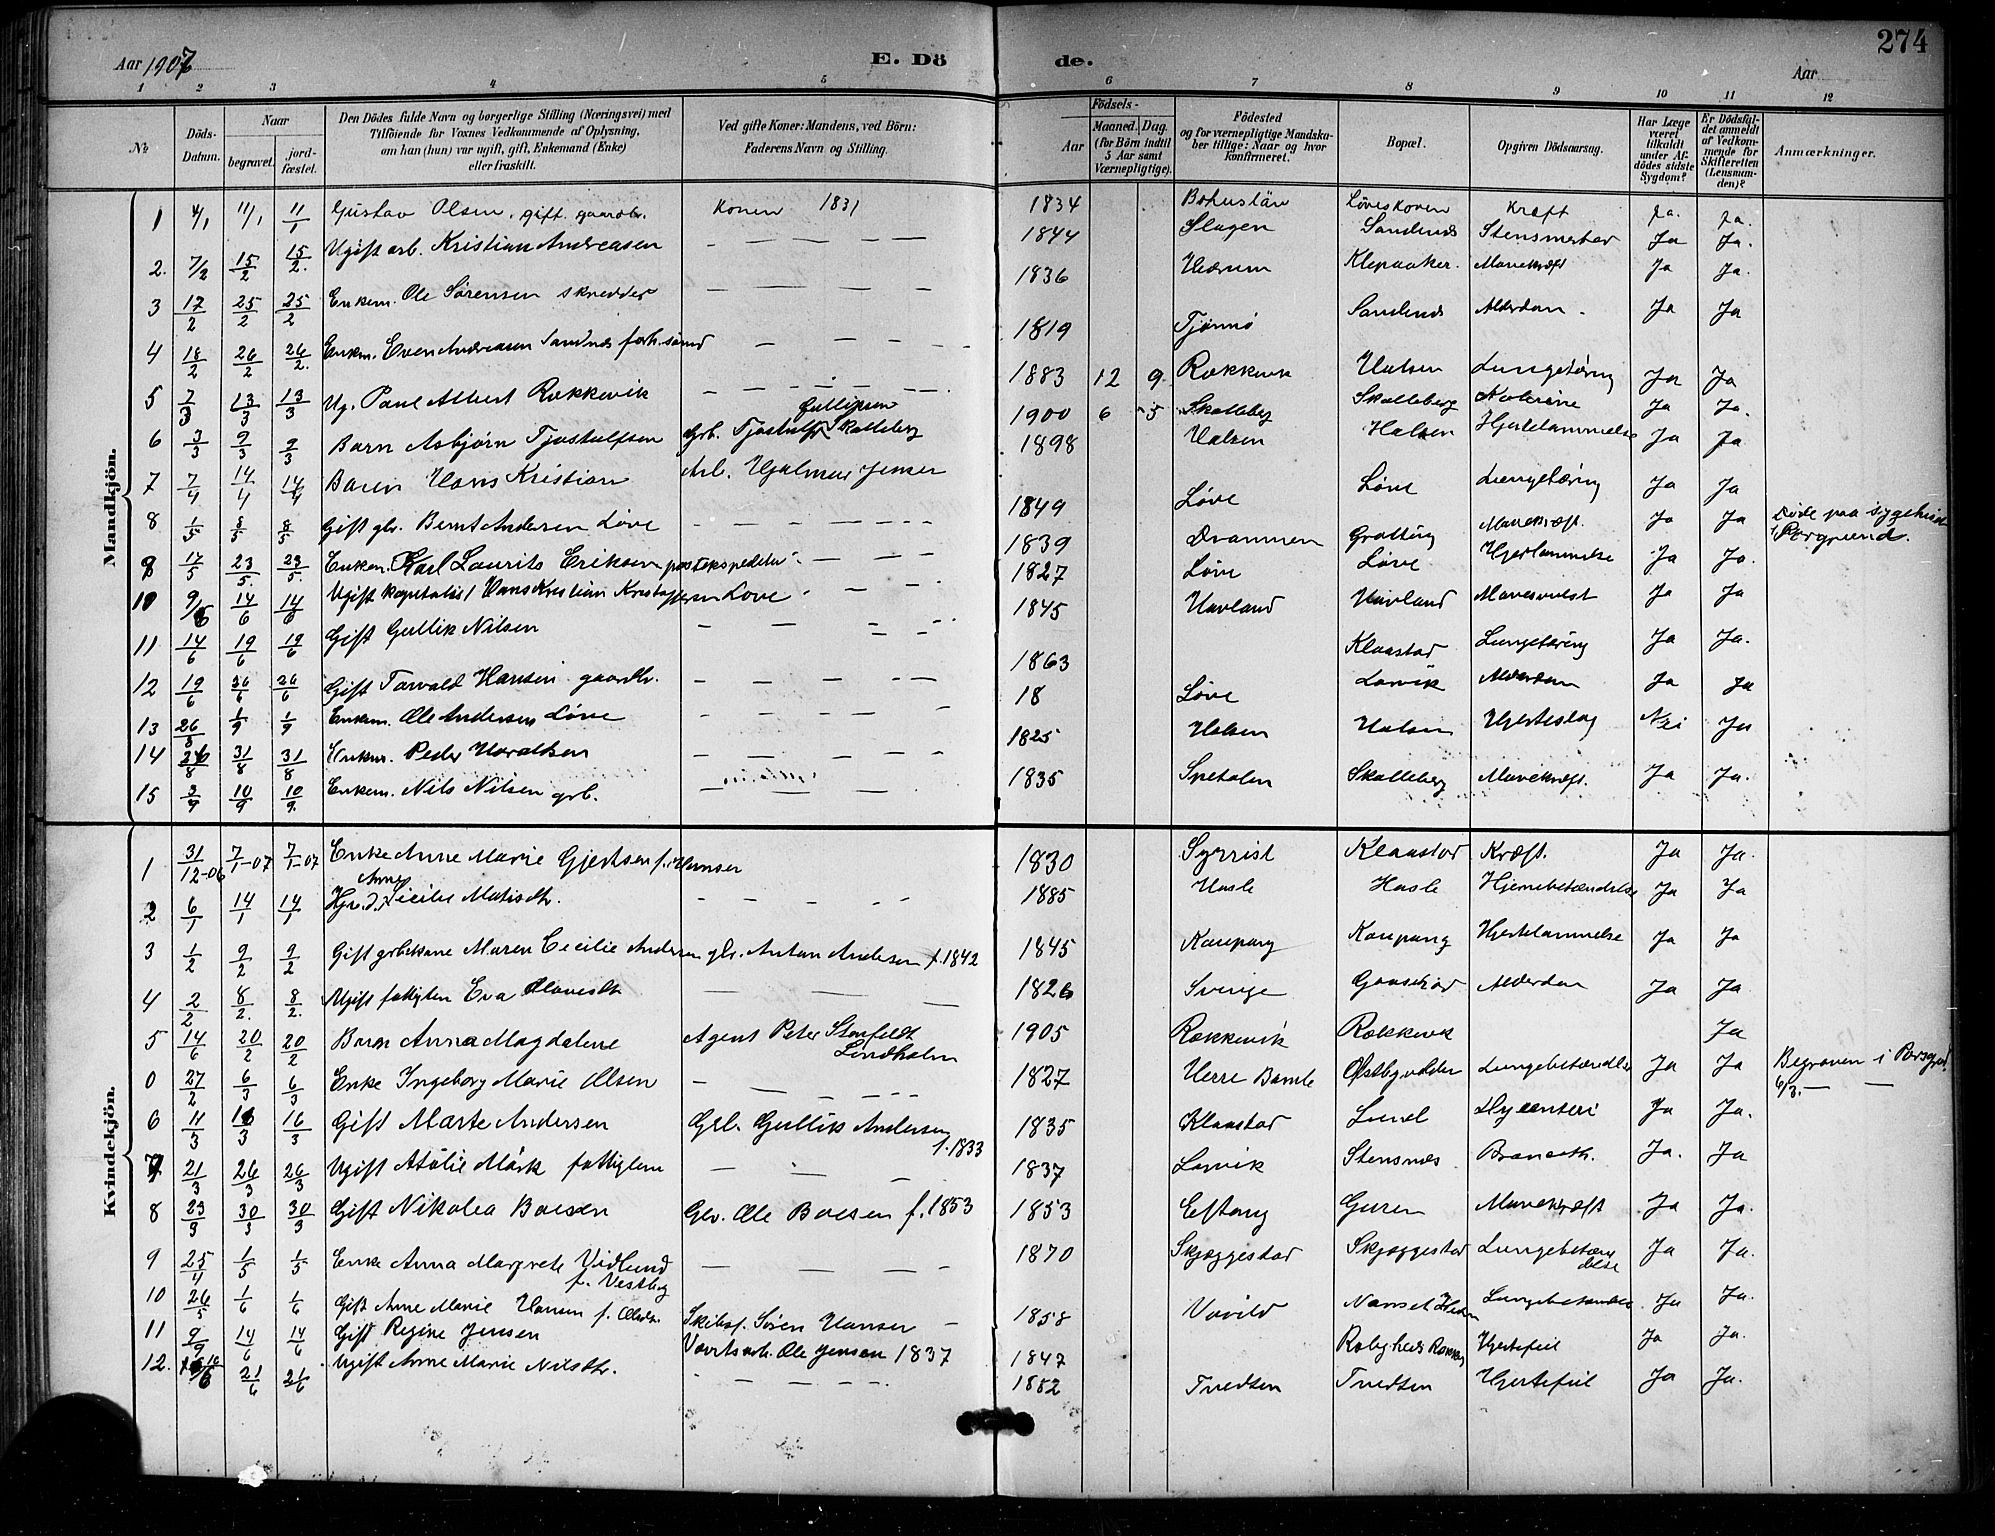 274
Aar 1907
E. Dö
de.
Aar
1 2 3 4 5 6 7 8 9 10 11 12
No
Döds-Datum.
Naar
begravet.
jord-fæstet.
Den Dödes fulde Navn og borgerlige Stilling (Næringsvei) med
Tilföiende for Voxnes Vedkommende af Oplysning,
om han (hun) var ugift, gift, Enkemand (Enke)
eller fraskilt.
Ved gifte Koner: Mandens, ved Börn:
Faderens Navn og Stilling.
Födsels-
Aar
Maaned.
Dag.
(for Börn indtil
5 Aar samt
Værnepligtige).
Födested
og for værnepligtige Mandska-
ber tillige: Naar og hvor
konfirmeret.
Bopæl.
Opgiven Dödsaarsag.
Har Læge
været
tilkaldt
under Af-
dödes sidste
Sygdom?
Er Dödsfal-
det anmeldt
af Vedkom-
mende for
Skifteretten
(Lensman-
den)?
Anmærkninger.
Mandkjön.
1 4/1 11/1 11/1 Gustav Olsen. gift. gaardbr. Konen 1831 1834 Bohuslän Løveskoven Kræft ja. ja.
2. 7/2 15/2 15/2. Ugift arb. Kristian Andreasen — — — — 1844 Slagen Sandnes Ja Ja.
3 17/2 25/2 25/2 Enkem. Ole Sørensen skredder — — — — 1836 Hedrum Klepaaker. Mavekræft Ja Ja.
4 18/2 26/2 26/2. Enkm. Even Andreasen Sandnes — — — 1819 Tjømø Sandnes Alderdom. Ja Ja
5 7/3 13/3 13/3 Ug. Paul Albert Rækkevik — — — — 1883 12 9 Rækkevik Halsen Lungetæring Ja Ja
6 3/3 9/3 9/3 Barn Asbjørn Tjostulfsen Grb. Tjostulf Gullifsen Skalleberg 1900 6 5 Skalleberg Skalleberg Ja Ja.
7 7/4 14/4 14/4 Barn Hans Kristian Arb. Hjalmar Jensen 1898 Halsen Halsen Hjertelammelse Ja Ja
8 1/5 8/5 8/5 Gift gbr. Bernt Andersen Løve — — — — 1849 Løve Løve Lungetæring Ja Ja
9 17/5 23/5 23/5 Enkem. Karl Laurits Eriksen postekspeditør — — — 1839 Drammen Grotting Mavekræft. Ja Ja Døde paa sygehus i Porsgrund.
10 9/6 14/6 14/6 Ugift kapitalist Hans Kristian Kristoffersen Løve — — 1827 Løve Løve Hjertlammelse Ja Ja.
11 14/6 19/6 19/6 Gift Gullik Nilsen — — — — 1845 Havland Havland Mavesvulst Ja Ja
12 19/6 26/6 26/6 Gift Torvald Hansen gaardbr. — — — — 1863 Klaastad Lungetæring Ja Ja.
13 26/8 1/9 1/9 Enkem. Ole Andersen Løve — — — — 18 Løve Larvik Alderdom Ja Ja
14 26/8 31/8 31/8 Enkem. Peder Haraldsen — — — — 1825 Halsen Halsen Hjerteslag Nei Ja
15 3/9 10/9 10/9. Enkem. Nils Nilsen grb. — — — 1835 Spetalen Skalleberg Mavekræft. Ja Ja.
Kvindekjön.
1 31/12-06 7/1-07 7/1-07 Enke Anne Marie Gjertsen f. Hansen 1830 Syrrist Klaastad Kræft. Ja Ja.
2 6/1 14/1 14/1 Hjv.d. Anne Cicilie Matisdtr. — — — 1885 Hasle Hasle Hjernebetændelse Ja Ja
3 1/2 9/2 9/2 Gift grbkone Maren Cecilie Andersen gbr. Anton Andersen f. 1842 1845 Kaupang Kaupang Hjertelammelse Ja Ja
4 2/2 8/2. 8/2. Ugift fattiglem Eva Olavesdtr — — — 1826 Sverige Gaasehod Alderdom Ja Ja
5 14/6 20/2 20/2 Barn Anna Magdalene Agent Peter Stenfeldt Lindholm 1905 Rækkevik Rækkevik Ja
0 27/2 6/3 6/3 Enke Ingeborg Marie Olsen — — — 1827 Herre Bamle Østbyødden Lungebetændelse Ja Ja Begraven i Porsgrd. 6/3. — —
6 11/3 16/3 16/3 Gift Marte Andersen Grb. Gullik Andersen f. 1833 1835 Klaastad Lund Ja Ja.
7 21/3 26/3 26/3 Ugift Atalie Mørk fattiglem — — 1837 Larvik Stensnes Ja. Ja
8 23/3 30/3 30/3 Gift Nikolea Boesen Gbr. Ole Boesen f. 1853 1853 Eftang Guren Mavekræft Ja Ja.
9 25/4 1/5 1/5 Enke Anna Margrete Vidlund f. Vestby — — — 1870 Skjæggestad Skjæggestad Lungebetændelse Ja Ja.
10 26/5 1/6 1/6 Gift Anne Marie Hansen f. Olsdtr. Skibsf. Søren Hansen 1858 Varild Nanset Hedrum Lungebetændelse Ja Ja.
11 9/9 14/6 14/6 Gift Regine Jensen Værftsarb. Ole Jensen 1837 1847 Rolighed Rækkev. Hjertefeil Ja Ja.
12. 16/6 21/6 21/6 Ugift Anne Marie Nilsdtr. — — — — 1852 Tvedten Tvedten Hjertefeil Ja Ja.